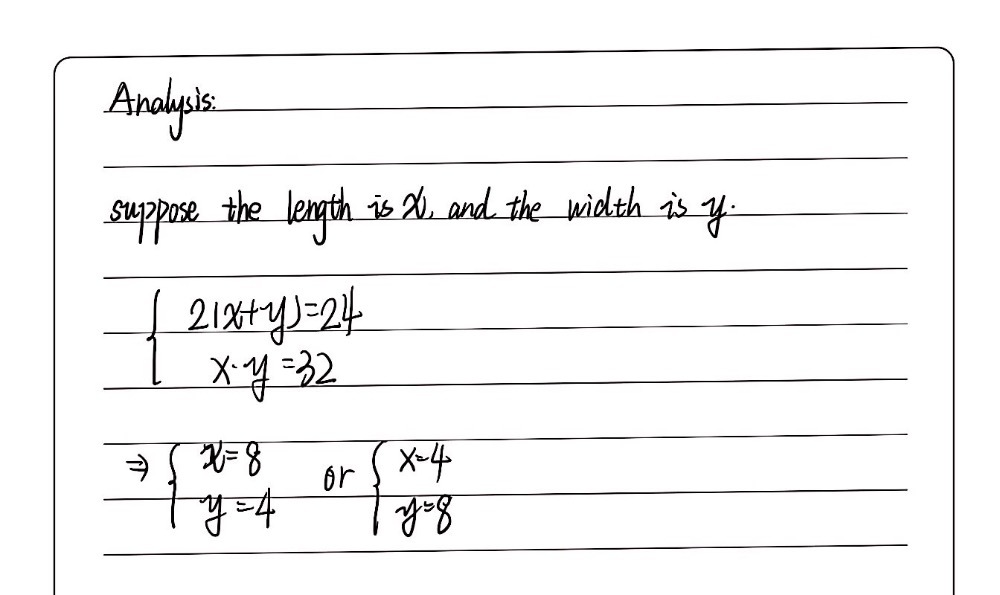 Analysis:
suppose the length is x, and the width is y.
2(x+y)=24
x·y=32
⇒ { x=8 or { x=4
y=4 y=8